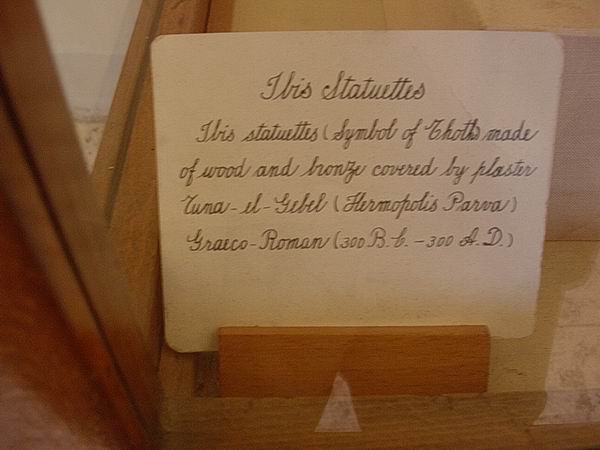 Ibis Statuettes
Ibis statuettes (Symbol of Thoth) made
of wood and bronze covered by plaster
Tuna-el-Gebel (Hermopolis Parva)
Graeco-Roman (300 B.C. - 300 A.D.)